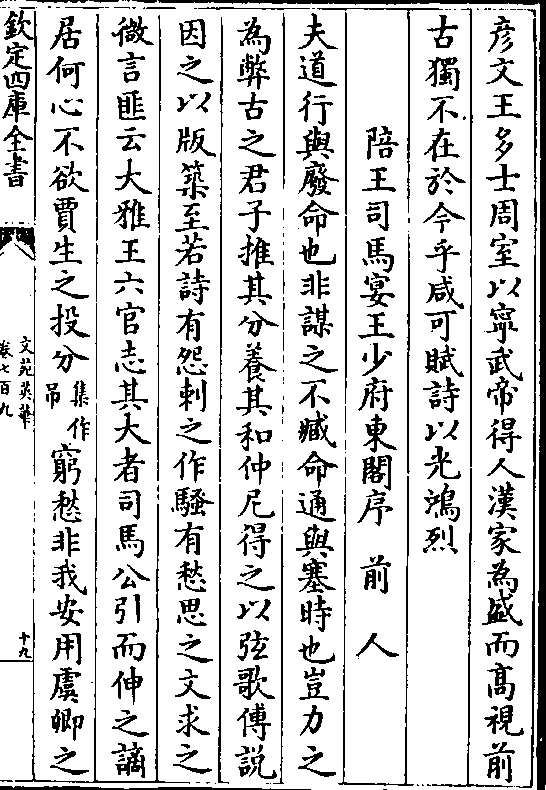 彦文王多士周室以寧武帝得人漢家為盛而髙視前
古獨不在於今乎咸可賦詩以光鴻烈
陪王司馬宴王少府東閣序　前人
夫道行與廢命也非謀之不臧命通與塞時也豈力之
為弊古之君子推其分養其和仲尼得之以弦歌傅説
因之以版築至若詩有怨刺之作騷有愁思之文求之
微言匪云大雅王六官志其大者司馬公引而伸之謫
居何心不欲賈生之投分集作吊窮愁非我安用虞卿之
欽定四庫全書
文苑英華
卷七百九
十九